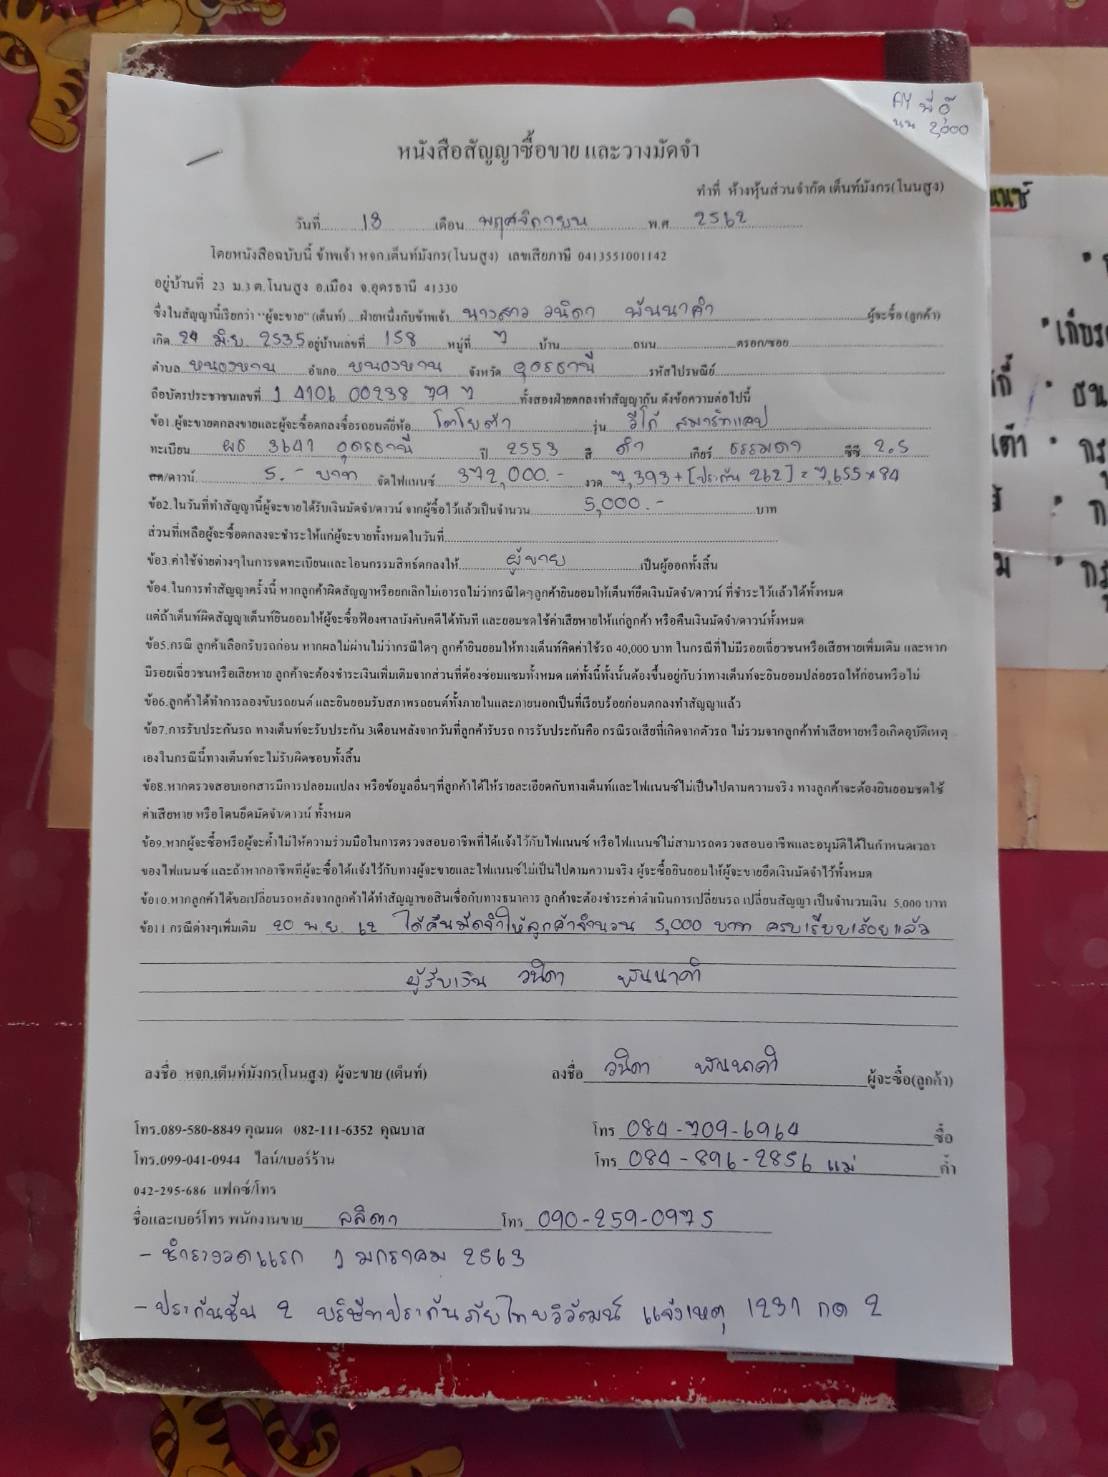 AY พี่อี๊ด
นน 2,000
หนังสือสัญญาซื้อขาย และวางมัดจำ
ทำที่ ห้างหุ้นส่วนจำกัด เต็นท์มังกร(โนนสูง)
วันที่ 18 เดือน พฤศจิกายน พ.ศ. 2562
โดยหนังสือฉบับนี้ ข้าพเจ้า หจก.เต็นท์มังกร(โนนสูง) เลขเสียภาษี 0413551001142
อยู่บ้านที่ 23 ม.3 ต.โนนสูง อ.เมือง จ.อุดรธานี 41330
ซึ่งในสัญญานี้เรียกว่า "ผู้จะขาย" (เต็นท์) ฝ่ายหนึ่งกับข้าพเจ้า นางสาว วนิดา พันนาคำ ผู้จะซื้อ (ลูกค้า)
เกิด 24 มิ.ย. 2535 อยู่บ้านเลขที่ 158 หมู่ที่ 7 บ้าน ถนน ตรอก/ซอย
ตำบล หนองหาน อำเภอ หนองหาน จังหวัด อุดรธานี รหัสไปรษณีย์
ถือบัตรประชาชนเลขที่ 1 4106 00238 79 7 ทั้งสองฝ่ายตกลงทำสัญญากัน ดังข้อความต่อไปนี้
ข้อ1.ผู้จะขายตกลงขายและผู้จะซื้อตกลงซื้อรถยนต์ยี่ห้อ โตโยต้า รุ่น วีโก้ สมาร์ทแคป
ทะเบียน ผธ 3641 อุดรธานี ปี 2553 สี ดำ เกียร์ ธรรมดา ซีซี 2.5
สด/ดาวน์ 5.- บาท จัดไฟแนนซ์ 372,000.- งวด 7,393+[ประกัน 262] = 7,655*84
ข้อ2.ในวันที่ทำสัญญานี้ผู้จะขายได้รับเงินมัดจำ/ดาวน์ จากผู้ซื้อไว้แล้วเป็นจำนวน 5,000.- บาท
ส่วนที่เหลือผู้จะซื้อตกลงจะชำระให้แก่ผู้จะขายทั้งหมดในวันที่
ข้อ3.ค่าใช้จ่ายต่างๆในการจดทะเบียนและโอนกรรมสิทธิ์ตกลงให้ ผู้ขาย เป็นผู้ออกทั้งสิ้น
ข้อ4.ในการทำสัญญาครั้งนี้ หากลูกค้าผิดสัญญาหรือยกเลิกไม่เอารถไม่ว่ากรณีใดๆลูกค้ายินยอมให้เต็นท์ยึดเงินมัดจำ/ดาวน์ ที่ชำระไว้แล้วได้ทั้งหมด
แต่ถ้าเต็นท์ผิดสัญญาเต็นท์ยินยอมให้ผู้จะซื้อฟ้องศาลบังคับคดีได้ทันที และยอมชดใช้ค่าเสียหายให้แก่ลูกค้า หรือคืนเงินมัดจำ/ดาวน์ทั้งหมด
ข้อ5.กรณี ลูกค้าเลือกรับรถก่อน หากผลไม่ผ่านไม่ว่ากรณีใดๆ ลูกค้ายินยอมให้ทางเต็นท์คิดค่าใช้รถ 40,000 บาท ในกรณีที่ไม่มีรอยเฉี่ยวชนหรือเสียหายเพิ่มเติม และหาก
มีรอยเฉี่ยวชนหรือเสียหาย ลูกค้าจะต้องชำระเงินเพิ่มเติมจากส่วนที่ต้องซ่อมแซมทั้งหมด แต่ทั้งนี้ทั้งนั้นต้องขึ้นอยู่กับว่าทางเต็นท์จะยินยอมปล่อยรถให้ก่อนหรือไม่
ข้อ6.ลูกค้าได้ทำการลองขับรถยนต์ และยินยอมรับสภาพรถยนต์ทั้งภายในและภายนอกเป็นที่เรียบร้อยก่อนตกลงทำสัญญาแล้ว
ข้อ7.การรับประกันรถ ทางเต็นท์จะรับประกัน 3เดือนหลังจากวันที่ลูกค้ารับรถ การรับประกันคือ กรณีรถเสียที่เกิดจากตัวรถ ไม่รวมจากลูกค้าทำเสียหายหรือเกิดอุบัติเหตุ
เองในกรณีนี้ทางเต็นท์จะไม่รับผิดชอบทั้งสิ้น
ข้อ8.หากตรวจสอบเอกสารมีการปลอมแปลง หรือข้อมูลอื่นๆที่ลูกค้าได้ให้รายละเอียดกับทางเต็นท์และไฟแนนซ์ไม่เป็นไปตามความจริง ทางลูกค้าจะต้องยินยอมชดใช้
ค่าเสียหาย หรือโดนยึดมัดจำ/ดาวน์ ทั้งหมด
ข้อ9.หากผู้จะซื้อหรือผู้จะค้ำไม่ให้ความร่วมมือในการตรวจสอบอาชีพที่ได้แจ้งไว้กับไฟแนนซ์ หรือไฟแนนซ์ไม่สามารถตรวจสอบอาชีพและอนุมัติได้ในกำหนดเวลา
ของไฟแนนซ์ และถ้าหากอาชีพที่ผู้จะซื้อได้แจ้งไว้กับทางผู้จะขายและไฟแนนซ์ไม่เป็นไปตามความจริง ผู้จะซื้อยินยอมให้ผู้จะขายยึดเงินมัดจำไว้ทั้งหมด
ข้อ10.หากลูกค้าได้ขอเปลี่ยนรถหลังจากลูกค้าได้ทำสัญญาขอสินเชื่อกับทางธนาคาร ลูกค้าจะต้องชำระค่าดำเนินการเปลี่ยนรถ เปลี่ยนสัญญา เป็นจำนวนเงิน 5,000 บาท
ข้อ11.กรณีต่างๆเพิ่มเติม 20 พ.ย. 62 ได้คืนมัดจำให้ลูกค้าจำนวน 5,000 บาท ครบเรียบร้อยแล้ว
ผู้รับเงิน วนิดา พันนาคำ
ลงชื่อ หจก.เต็นท์มังกร(โนนสูง) ผู้จะขาย (เต็นท์) ลงชื่อ วนิดา พันนาคำ ผู้จะซื้อ(ลูกค้า)
โทร.089-580-8849 คุณมด 082-111-6352 คุณบาส โทร 084-709-6964 ซื้อ
โทร.099-041-0944 ไลน์/เบอร์ร้าน โทร 084-896-2856 แม่ ค้ำ
042-295-686 แฟกซ์/โทร
ชื่อและเบอร์โทร พนักงานขาย ลลิตา โทร 090-259-0975
- ชำระงวดแรก 1 มกราคม 2563
- ประกันชั้น 2 บริษัทประกันภัยไทยวิวัฒน์ แจ้งเหตุ 1231 กด 2